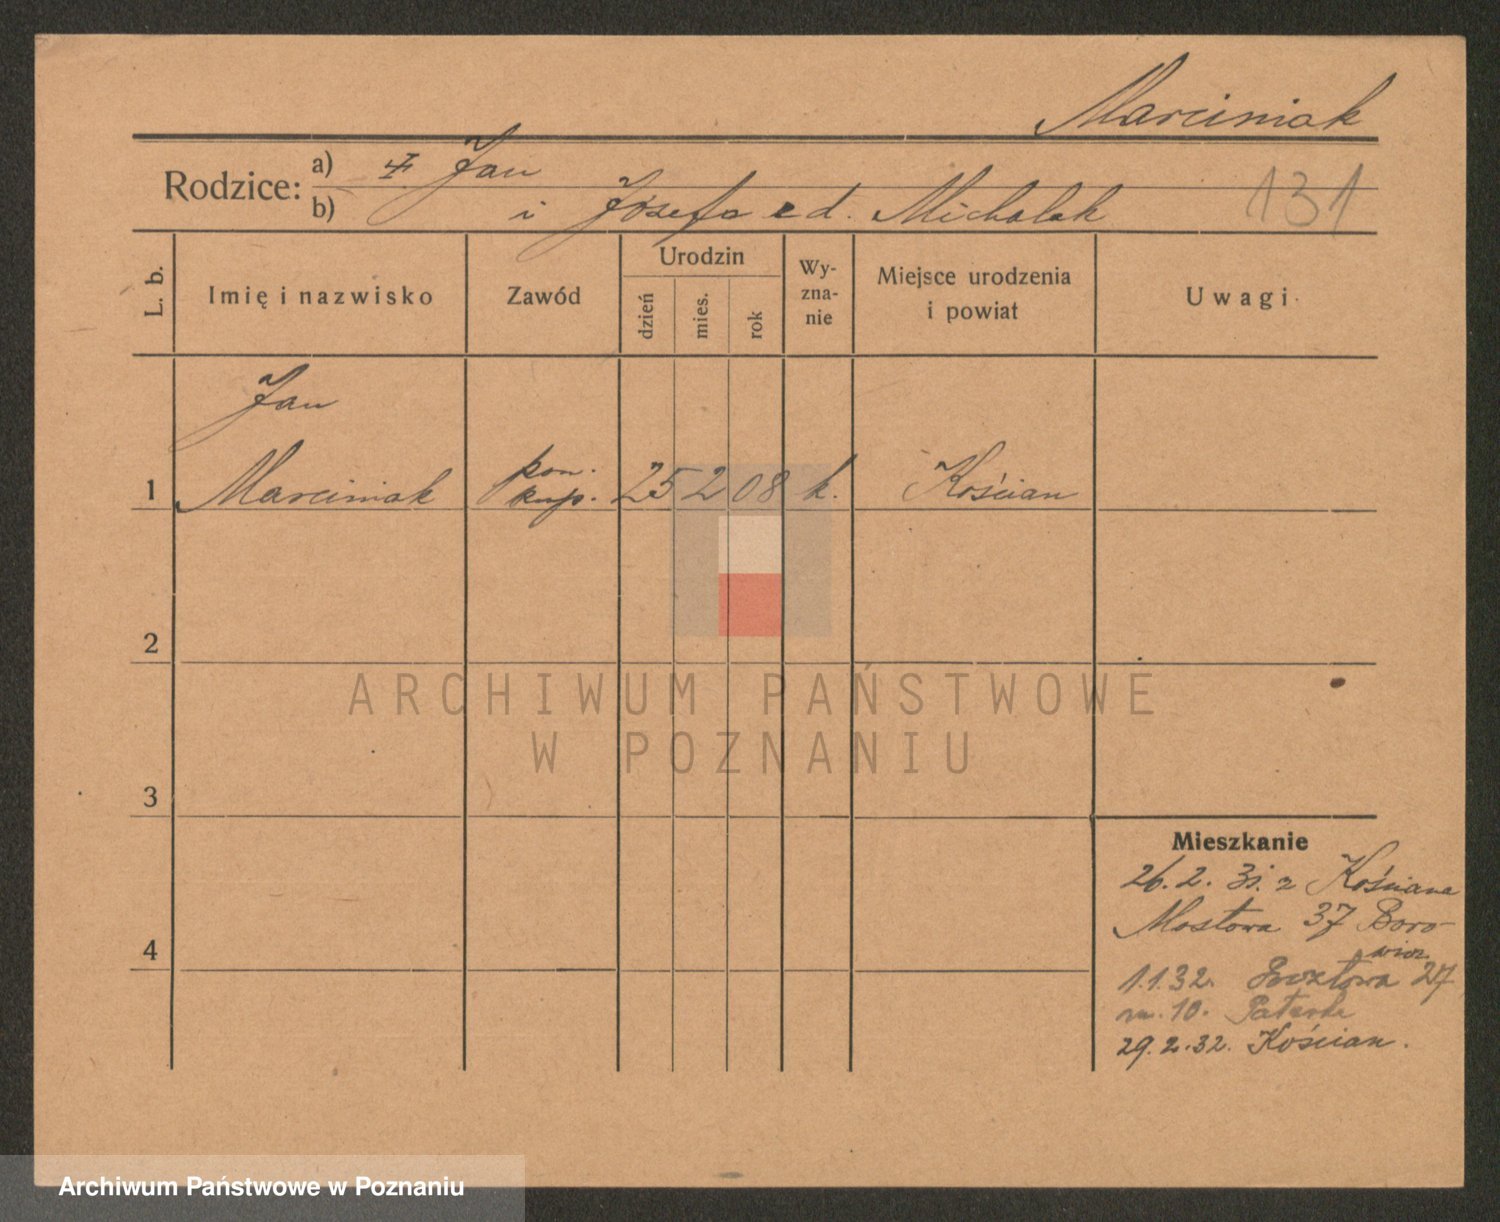 Marciniak
Rodzice: a) Jan
b) i Józefa z d. Michalak
131
L. b.
Imię i nazwisko
Zawód
Urodzin
dzień
mies.
rok
Wy-
zna-
nie
Miejsce urodzenia
i powiat
Uwagi
Jan
1 Marciniak pom. kup. 25 2 08 k. Kościan
2
ARCHIWUM PAŃSTWOWE
W POZNANIU
3
Mieszkanie
26.2.31. z Kościana
Mostowa 37 Boro-
wicz
4
1.1.32. 27
m. 10.
29.2.32. Kościan.
Archiwum Państwowe w Poznaniu